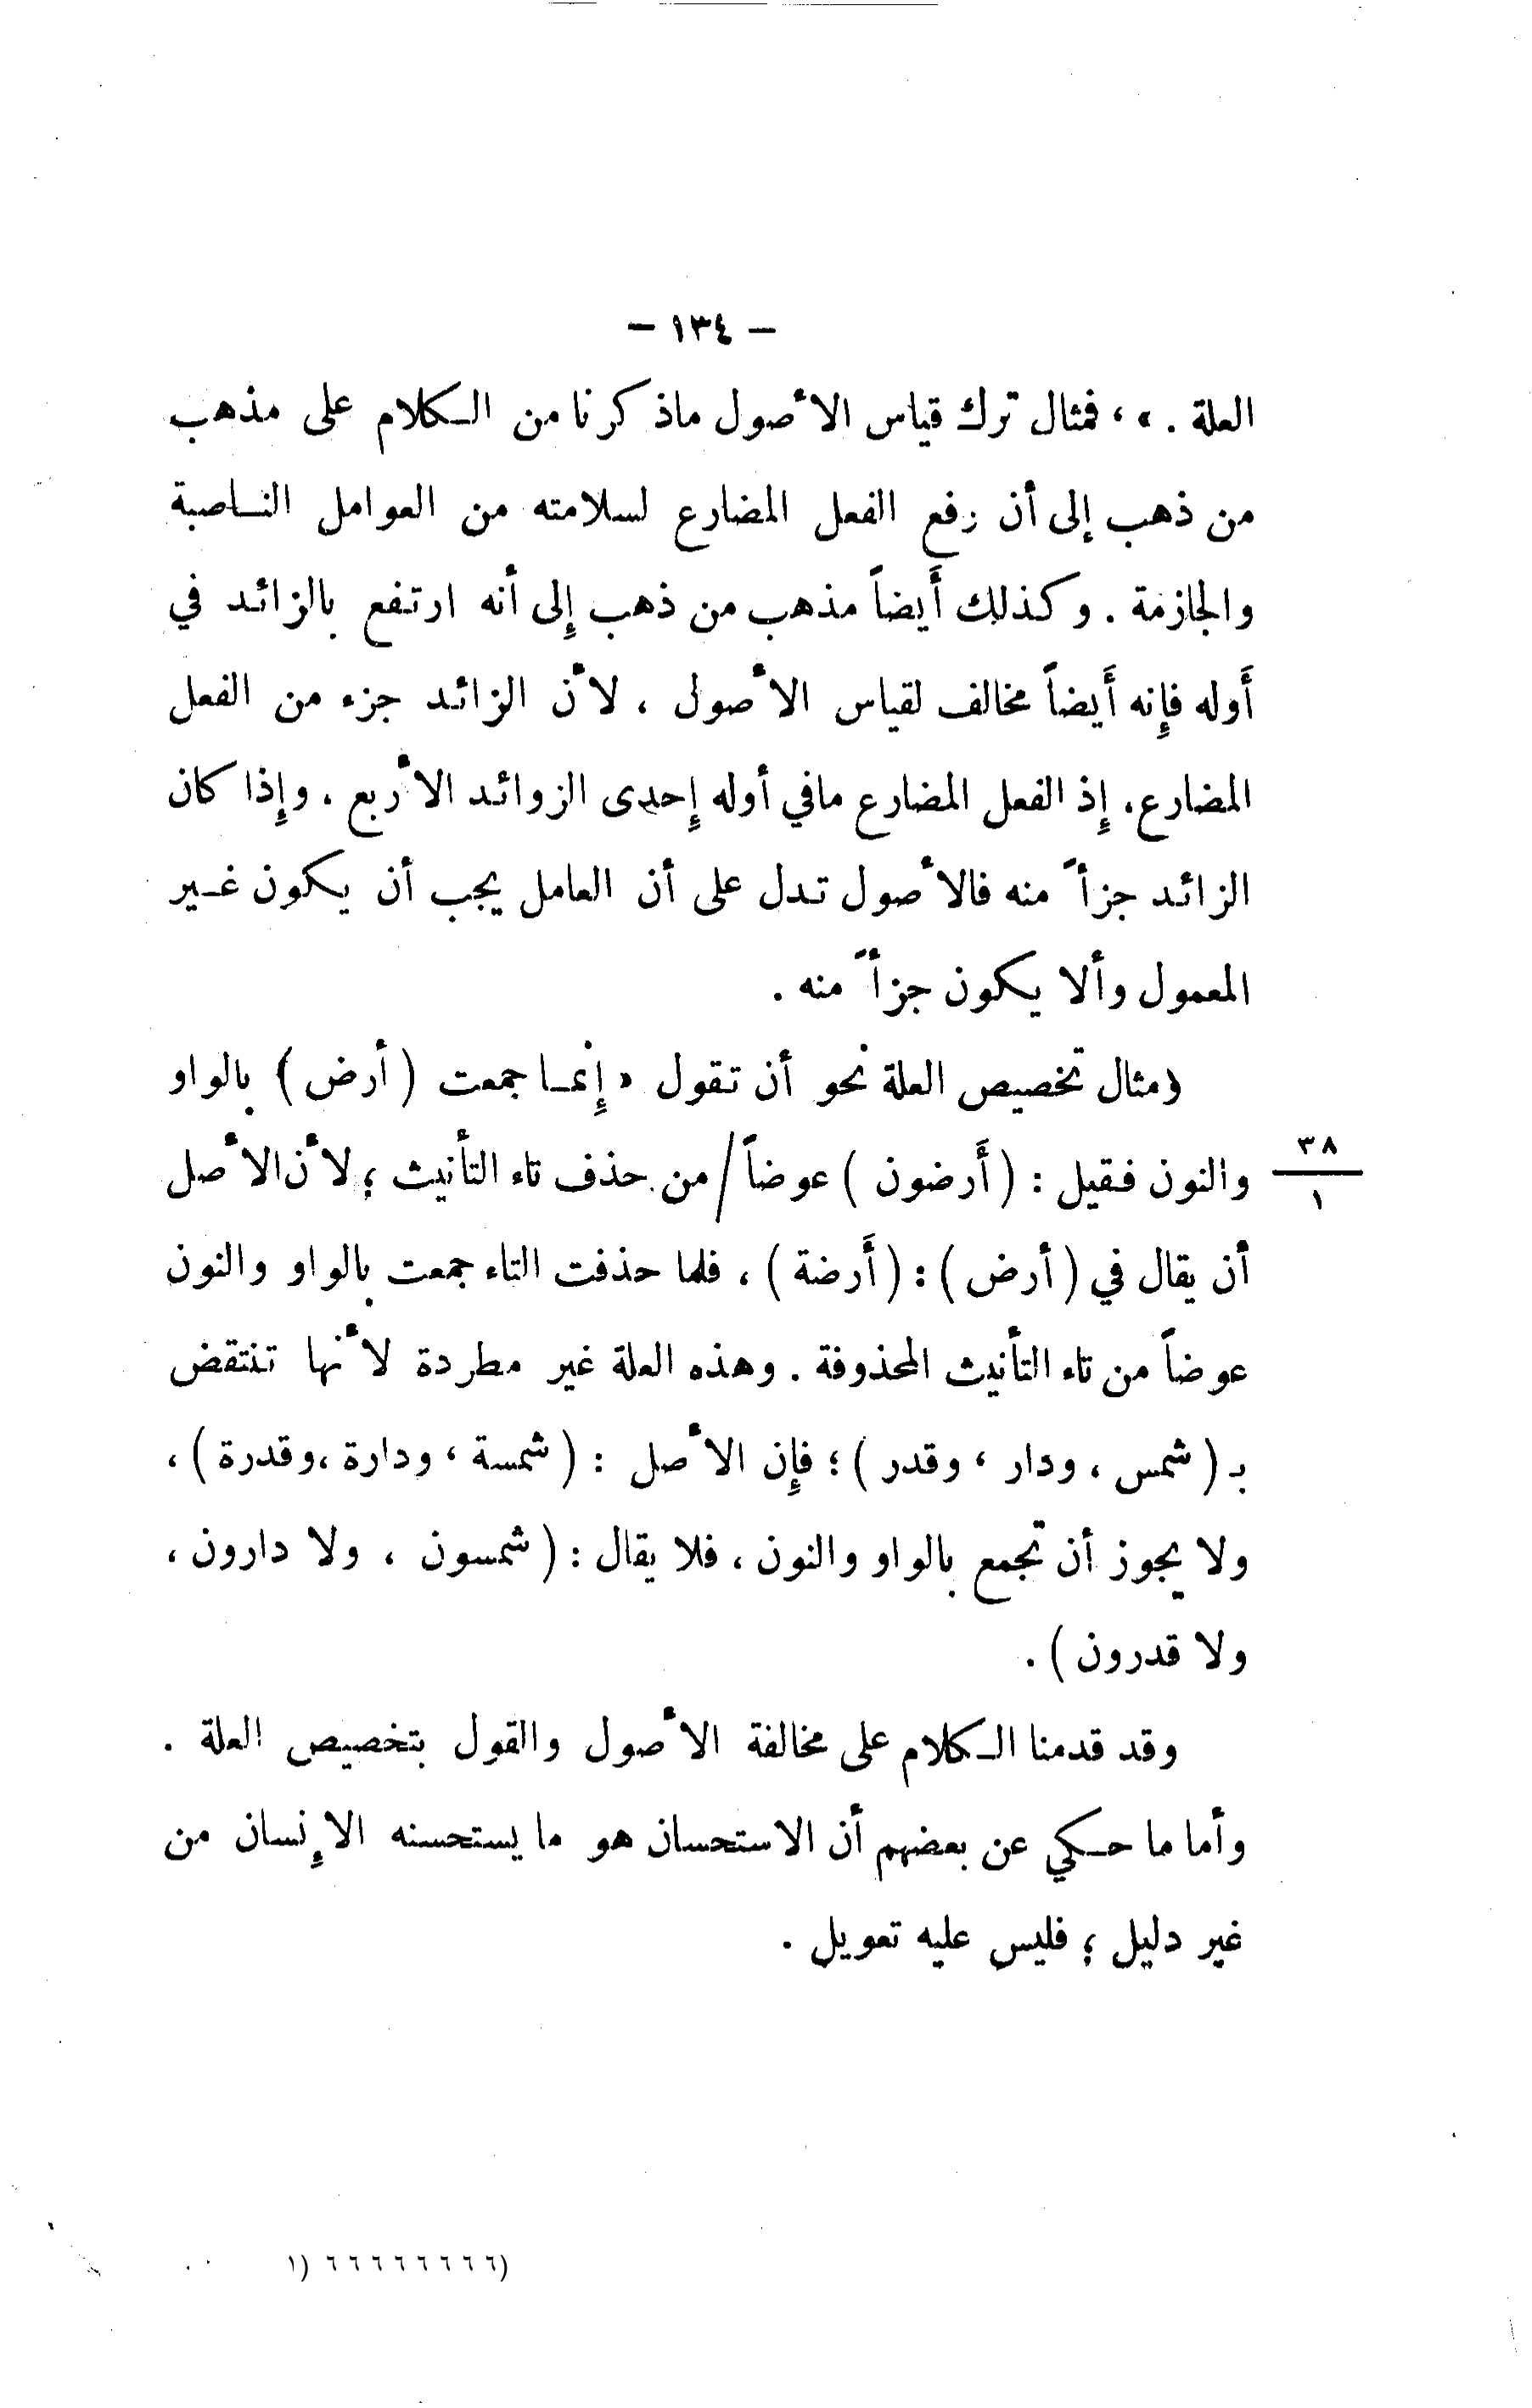 — ١٣٤ —
العلة . » ، فمثال ترك قياس الأصول ماذكرنا من الكلام على مذهب
من ذهب إلى أن رفع الفعل المضارع لسلامته من العوامل الناصبة
والجازمة . وكذلك أَيضاً مذهب من ذهب إِلى أنه ارتفع بالزائد في
أَوله فإِنه أَيضاً مخالف لقياس الأصول ، لأن الزائد جزء من الفعل
المضارع، إِذ الفعل المضارع مافي أوله إِحدى الزوائد الأربع ، وإِذا كان
الزائد جزأً منه فالأصول تدل على أن العامل يجب أن يكون غير
المعمول وألا يكون جزأً منه .
ومثال تخصيص العلة نحو أن تقول « إِنما جمعت (أرض) بالواو
والنون فقيل : (أَرضون ) عوضاً / من حذف تاء التأنيث ؛ لأن الأصل
٣٨
١
أن يقال في (أرض ) : (أَرضة ) ، فلما حذفت التاء جمعت بالواو والنون
عوضاً من تاء التأنيث المحذوفة . وهذه العلة غير مطردة لأنها تنتقض
بـ ( شمس ، ودار ، وقدر ) ؛ فإِن الأصل : ( شمسة ، ودارة ،وقدرة ) ،
ولا يجوز أن تجمع بالواو والنون ، فلا يقال : ( شمسون ، ولا دارون ،
ولا قدرون ) .
وقد قدمنا الكلام على مخالفة الأصول والقول بتخصيص العلة .
وأما ما حكي عن بعضهم أن الاستحسان هو ما يستحسنه الإِنسان من
غير دليل ؛ فليس عليه تعويل .
(٦ ٦ ٦ ٦ ٦ ٦ ٦ ٦ (١